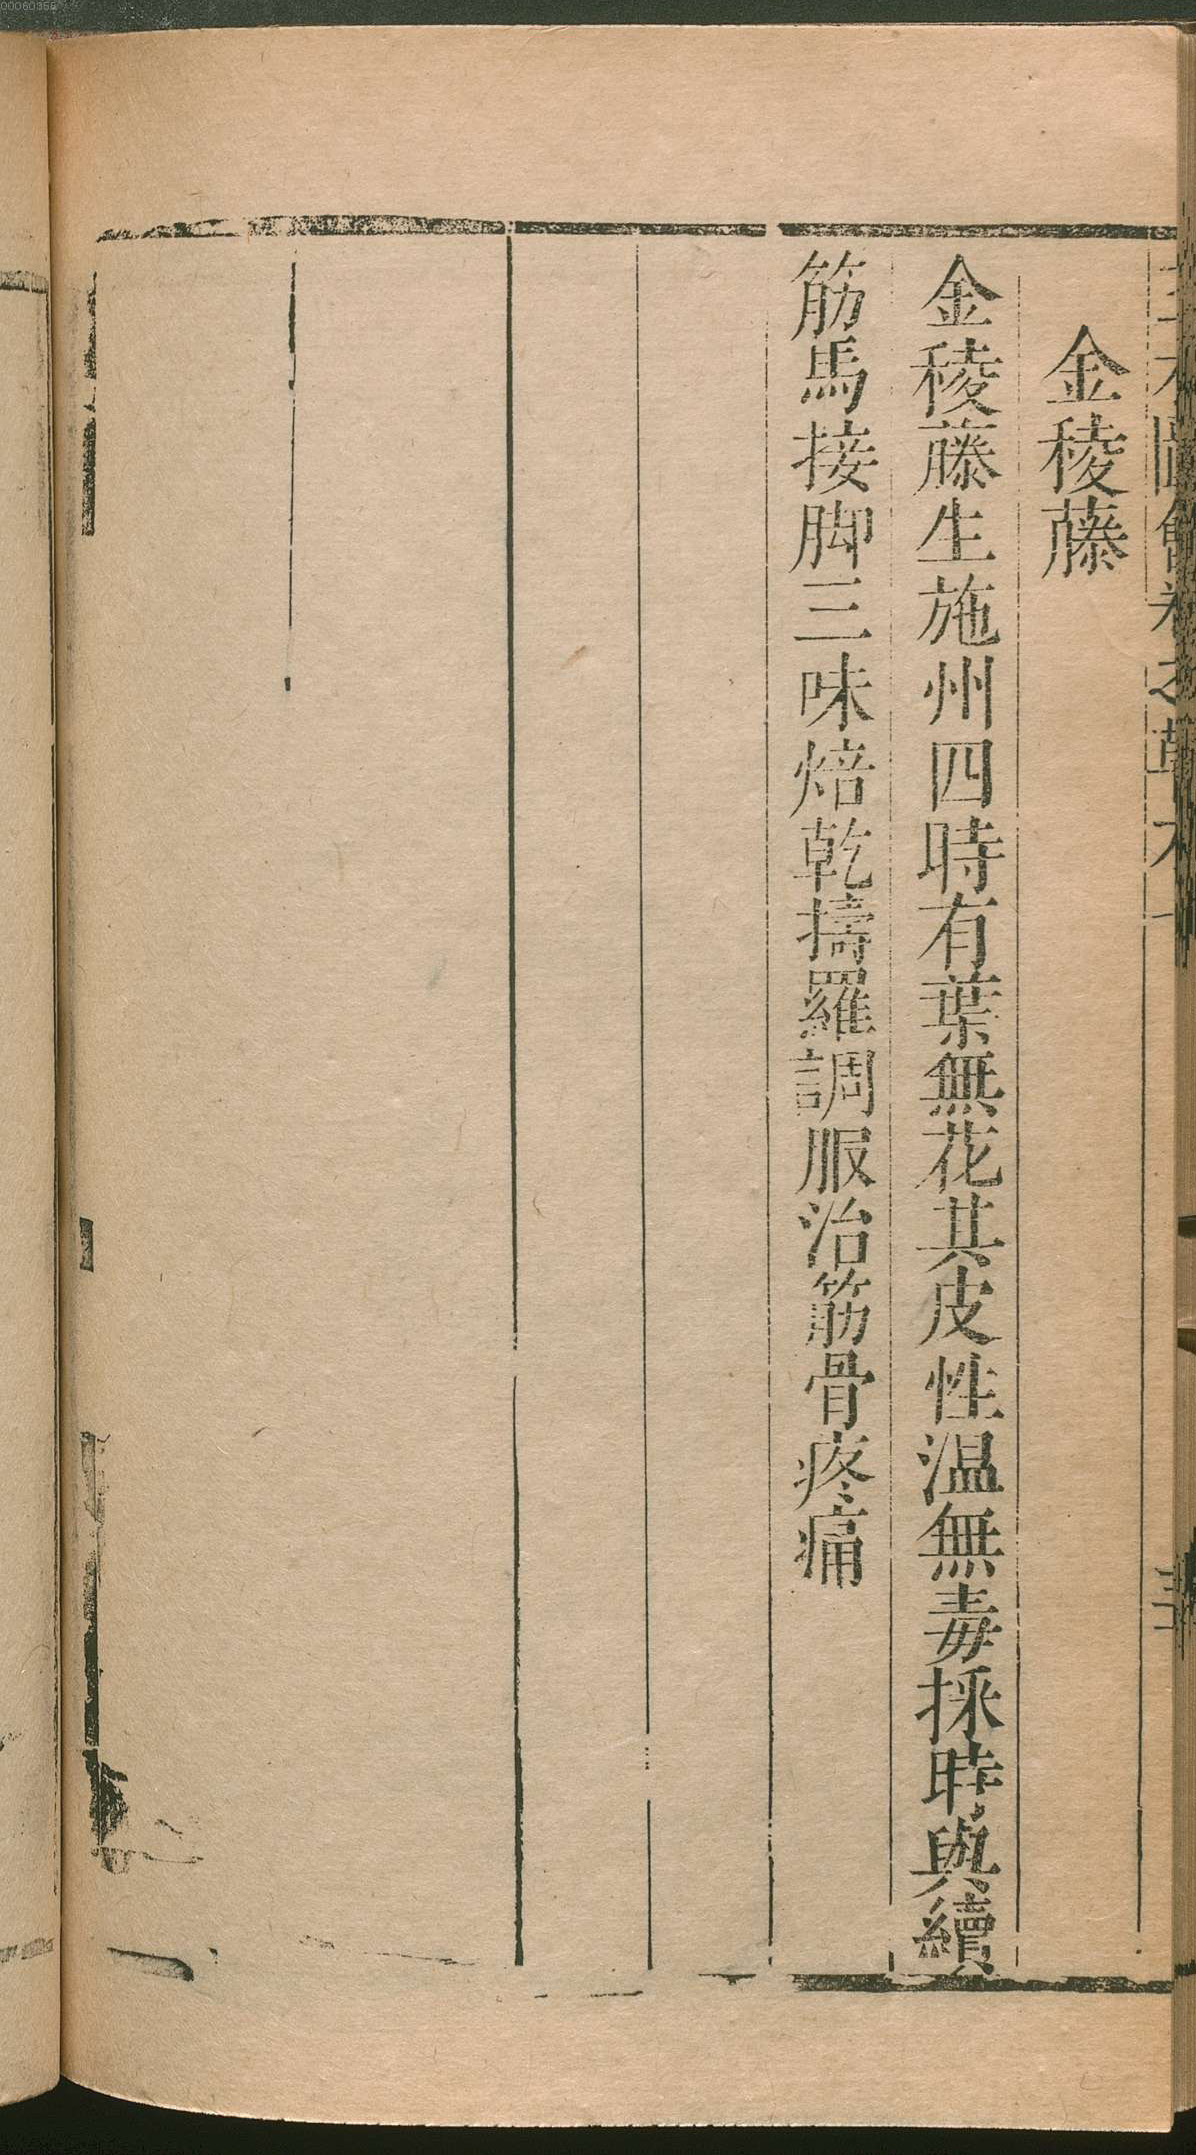 00060356
金稜藤
金稜藤生施州四時有葉無花其皮性温無毒採時與續
筋馬接脚三味焙乾擣羅調服治筋骨疼痛